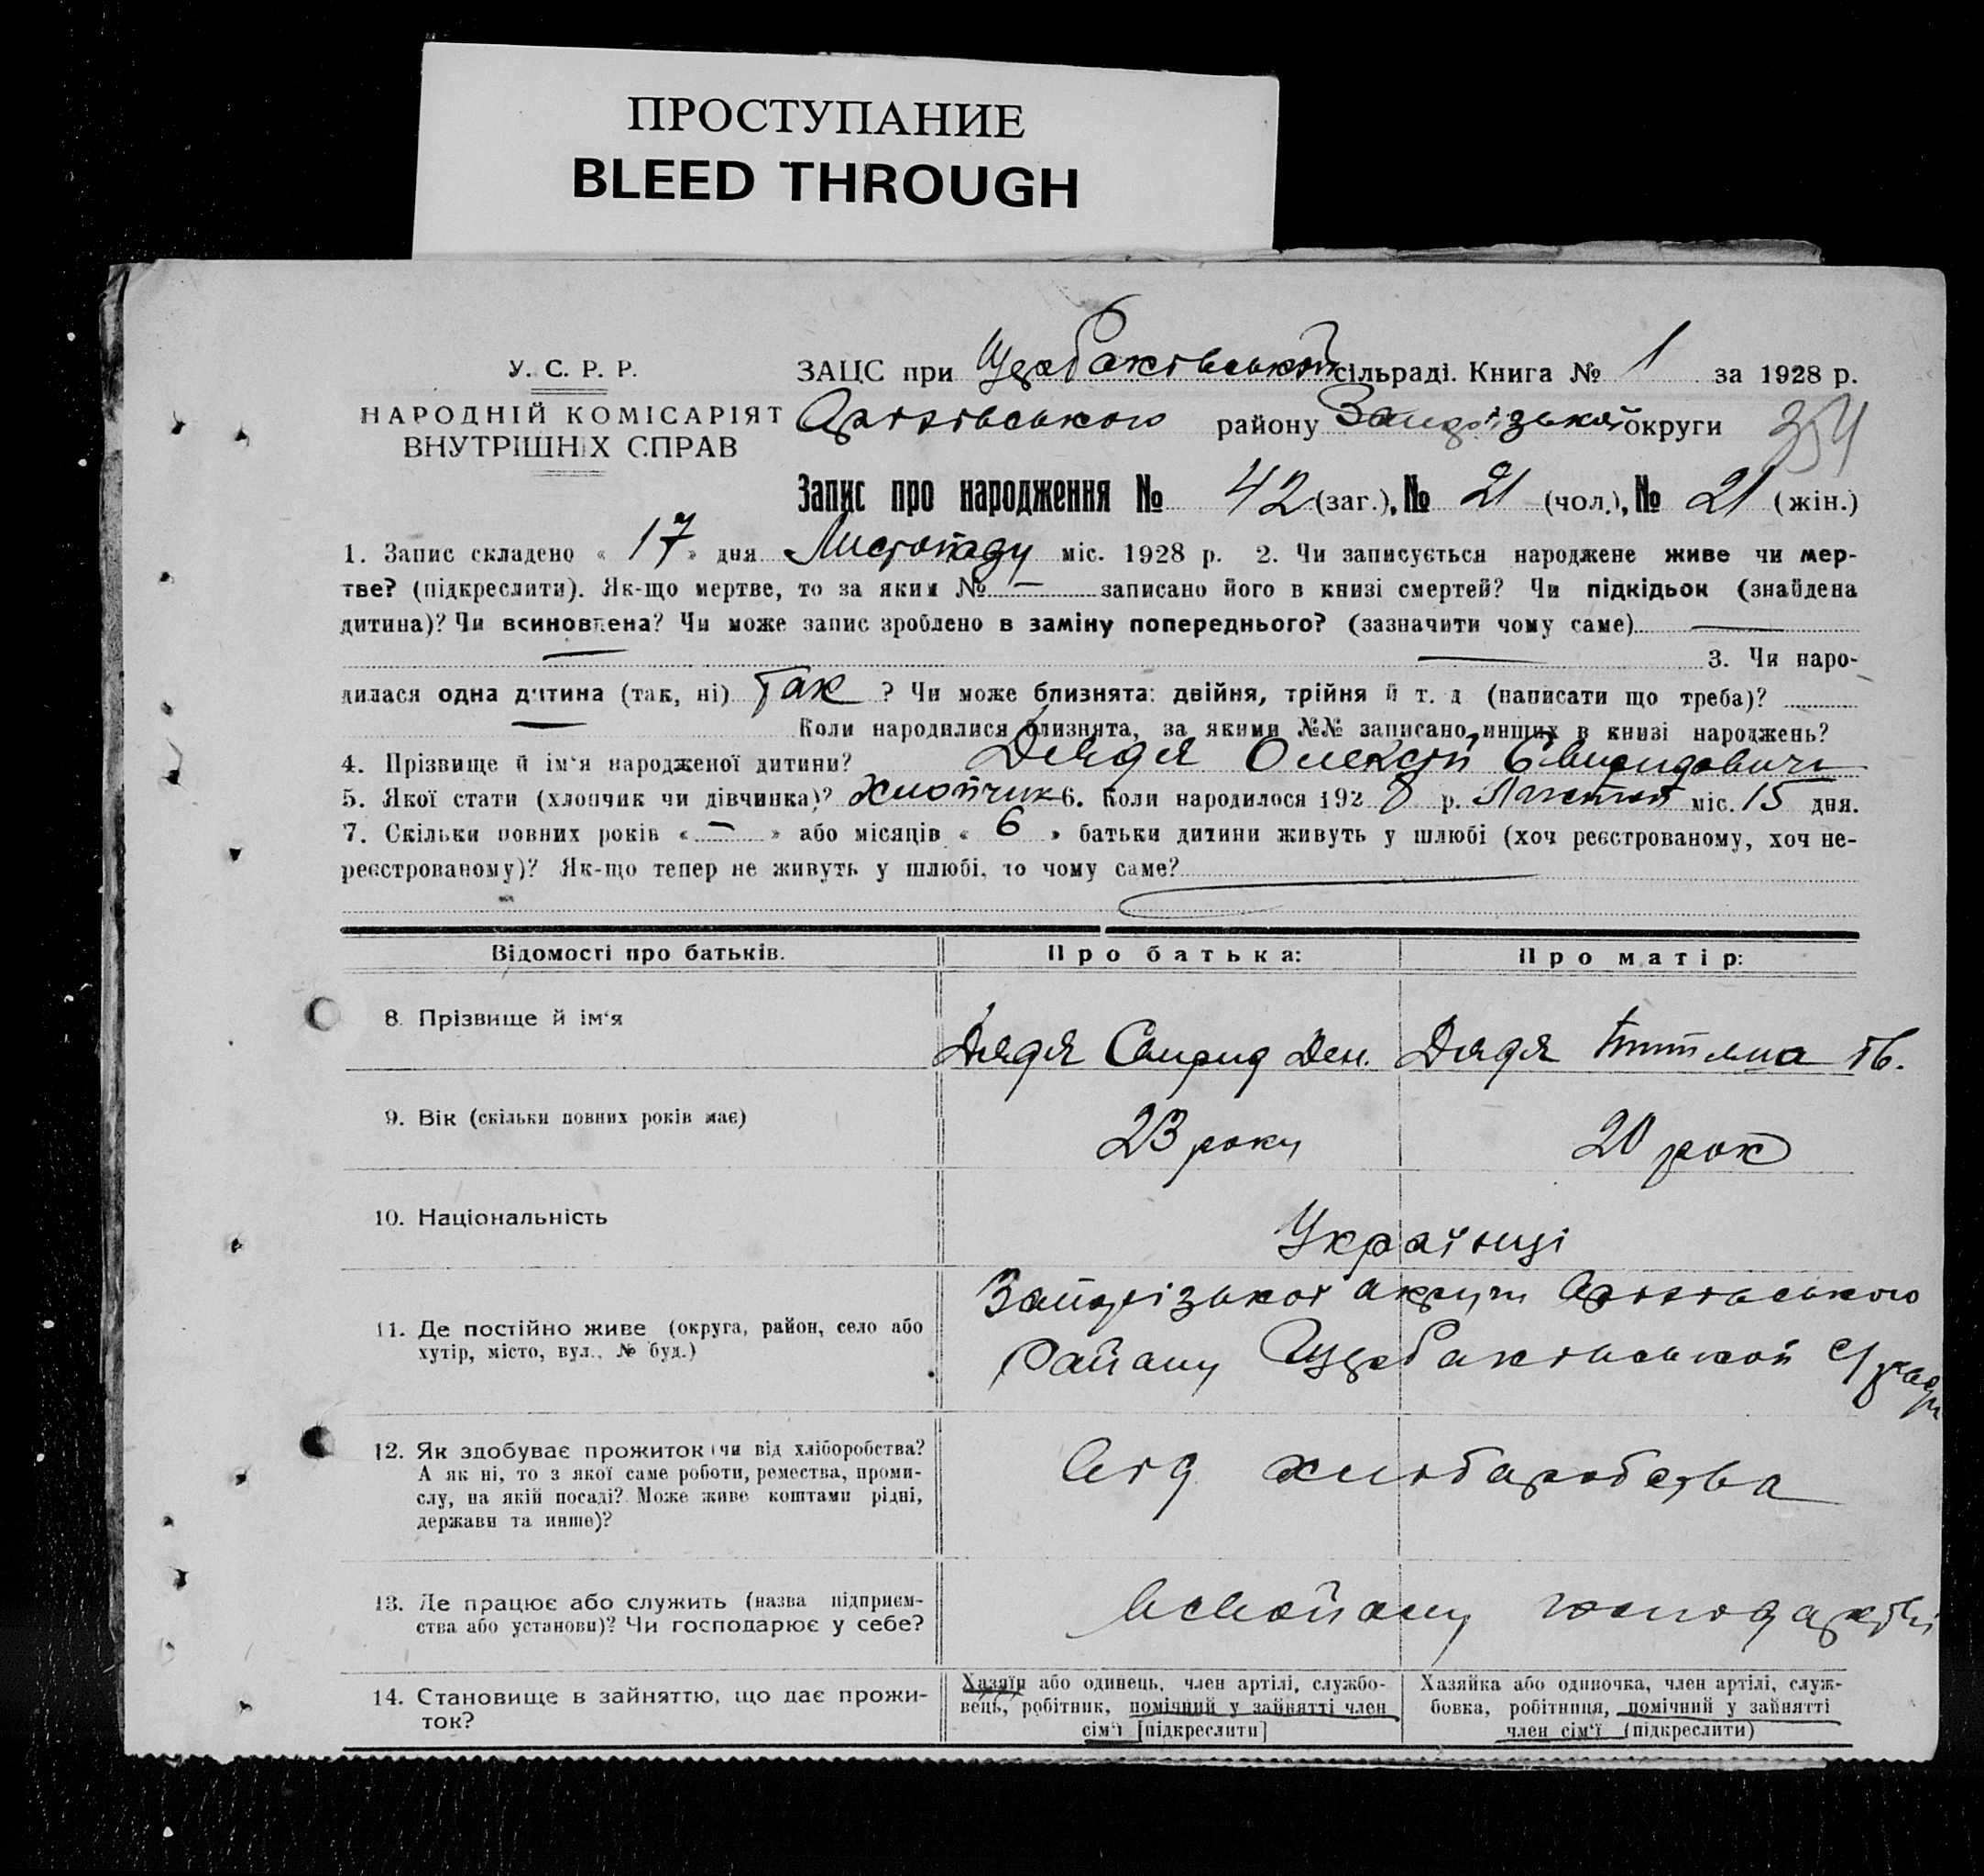 ПРОСТУПАНИЕ
BLEED THROUGH
У. С. Р. Р.
НАРОДНІЙ КОМІСАРІЯТ
ВНУТРІШНІХ СПРАВ
ЗАЦС при Щербаківській сільраді. Книга № 1 за 1928 р.
Оріхівського району Запорізької округи
354
Запис про народження № 42 (заг.), № 21 (чол.), № 21 (жін.)
1. Запис складено « 17 » дня Листопаду міс. 1928 р. 2. Чи записується народжене живе чи мер-
тве? (підкреслити). Як-що мертве, то за яким № — записано його в книзі смертей? Чи підкідьок (знайдена
дитина)? Чи всиновлена? Чи може запис зроблено в заміну попереднього? (зазначити чому саме) —
— — 3. Чи наро-
дилася одна дитина (так, ні) Так ? Чи може близнята: двійня, трійня й т. д (написати що треба)?
— Коли народилися близнята, за якими №№ записано инших в книзі народжень?
4. Прізвище й ім'я народженої дитини? Дядя Олексій
5. Якої стати (хлопчик чи дівчинка)? Хлопчик 6. Коли народилося 1928 р. Листоп міс. 15 дня.
7. Скільки повних років « — » або місяців « 6 » батьки дитини живуть у шлюбі (хоч реєстрованому, хоч не-
реєстрованому)? Як-що тепер не живуть у шлюбі, то чому саме?
Відомості про батьків.
Про батька:
Про матір:
8. Прізвище й ім'я
Дядя Спирид Ден.
Дядя Ів.
9. Вік (скільки повних років має)
23 роки
20 рок
10. Національність
Українці
11. Де постійно живе (округа, район, село або
хутір, місто, вул., № буд.)
Запорізької округи Оріхівського
Району Щербаківської с/ради
12. Як здобуває прожиток (чи від хліборобства?
А як ні, то з якої саме роботи, ремества, проми-
слу, на якій посаді? Може живе коштами рідні,
держави та инше)?
Від хліборобства
13. Де працює або служить (назва підприєм-
ства або установи)? Чи господарює у себе?
всвойому господарстві
14. Становище в зайняттю, що дає прожи-
ток?
Хазяїн або одинець, член артілі, службо-
вець, робітник, помічний у зайнятті член
сім'ї [підкреслити]
Хазяйка або одиночка, член артілі, служ-
бовка, робітниця, помічний у зайнятті
член сім'ї (підкреслити)